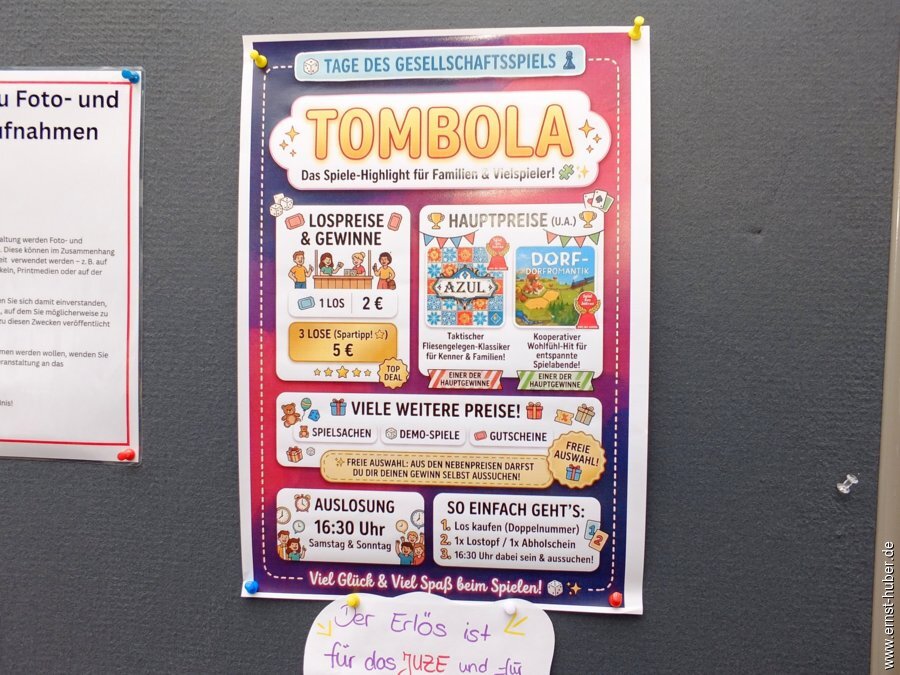 u Foto- und
ufnahmen
altung werden Foto- und
. Diese können im Zusammenhang
eit verwendet werden – z. B. auf
keln, Printmedien oder auf der
en Sie sich damit einverstanden,
, auf dem Sie möglicherweise zu
zu diesen Zwecken veröffentlicht
men werden wollen, wenden Sie
eranstaltung an das
dnis!
TAGE DES GESELLSCHAFTSSPIELS
TOMBOLA
Das Spiele-Highlight für Familien & Vielspieler!
LOSPREISE
& GEWINNE
1 LOS 2 €
3 LOSE (Spartipp!)
5 €
TOP
DEAL
HAUPTPREISE (U.A.)
AZUL
Taktischer
Fliesengelegen-Klassiker
für Kenner & Familien!
EINER DER
HAUPTGEWINNE
DORF-
DORFROMANTIK
Kooperativer
Wohlfühl-Hit für
entspannte
Spielabende!
EINER DER
HAUPTGEWINNE
VIELE WEITERE PREISE!
SPIELSACHEN DEMO-SPIELE GUTSCHEINE
FREIE
AUSWAHL!
FREIE AUSWAHL: AUS DEN NEBENPREISEN DARFST
DU DIR DEINEN GEWINN SELBST AUSSUCHEN!
AUSLOSUNG
16:30 Uhr
Samstag & Sonntag
SO EINFACH GEHT'S:
1. Los kaufen (Doppelnummer)
2. 1x Lostopf / 1x Abholschein
3. 16:30 Uhr dabei sein & aussuchen!
1 2
Viel Glück & Viel Spaß beim Spielen!
Der Erlös ist
für das JUZE und für
www.ernst-huber.de